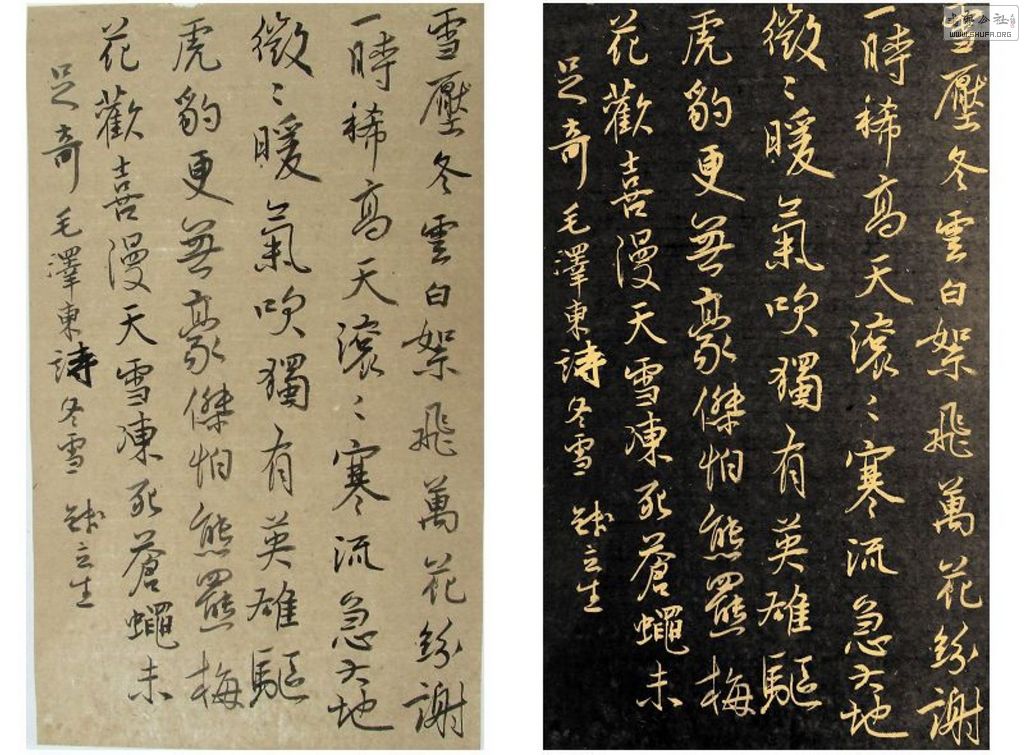 雪壓冬雲白絮飛萬花紛謝
一時稀高天滾〻寒流急大地
微〻暖氣吹獨有英雄驅
虎豹更無豪傑怕熊羆梅
花歡喜漫天雪凍死蒼蠅未
足奇 毛澤東詩冬雪 立生
雪壓冬雲白絮飛萬花紛謝
一時稀高天滾〻寒流急大地
微〻暖氣吹獨有英雄驅
虎豹更無豪傑怕熊羆梅
花歡喜漫天雪凍死蒼蠅未
足奇 毛澤東詩冬雪 立生
公社
WWW.SHUFA.ORG